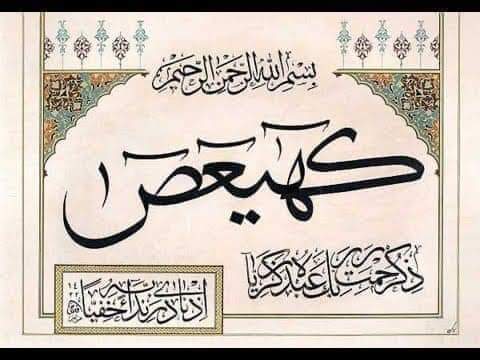 بِسْمِ اللهِ الرَّحْمٰنِ الرَّحِيْمِ
كهيعص
ذكر رحمت ربك عبده زكريا
إذ نادى ربه نداء خفيا